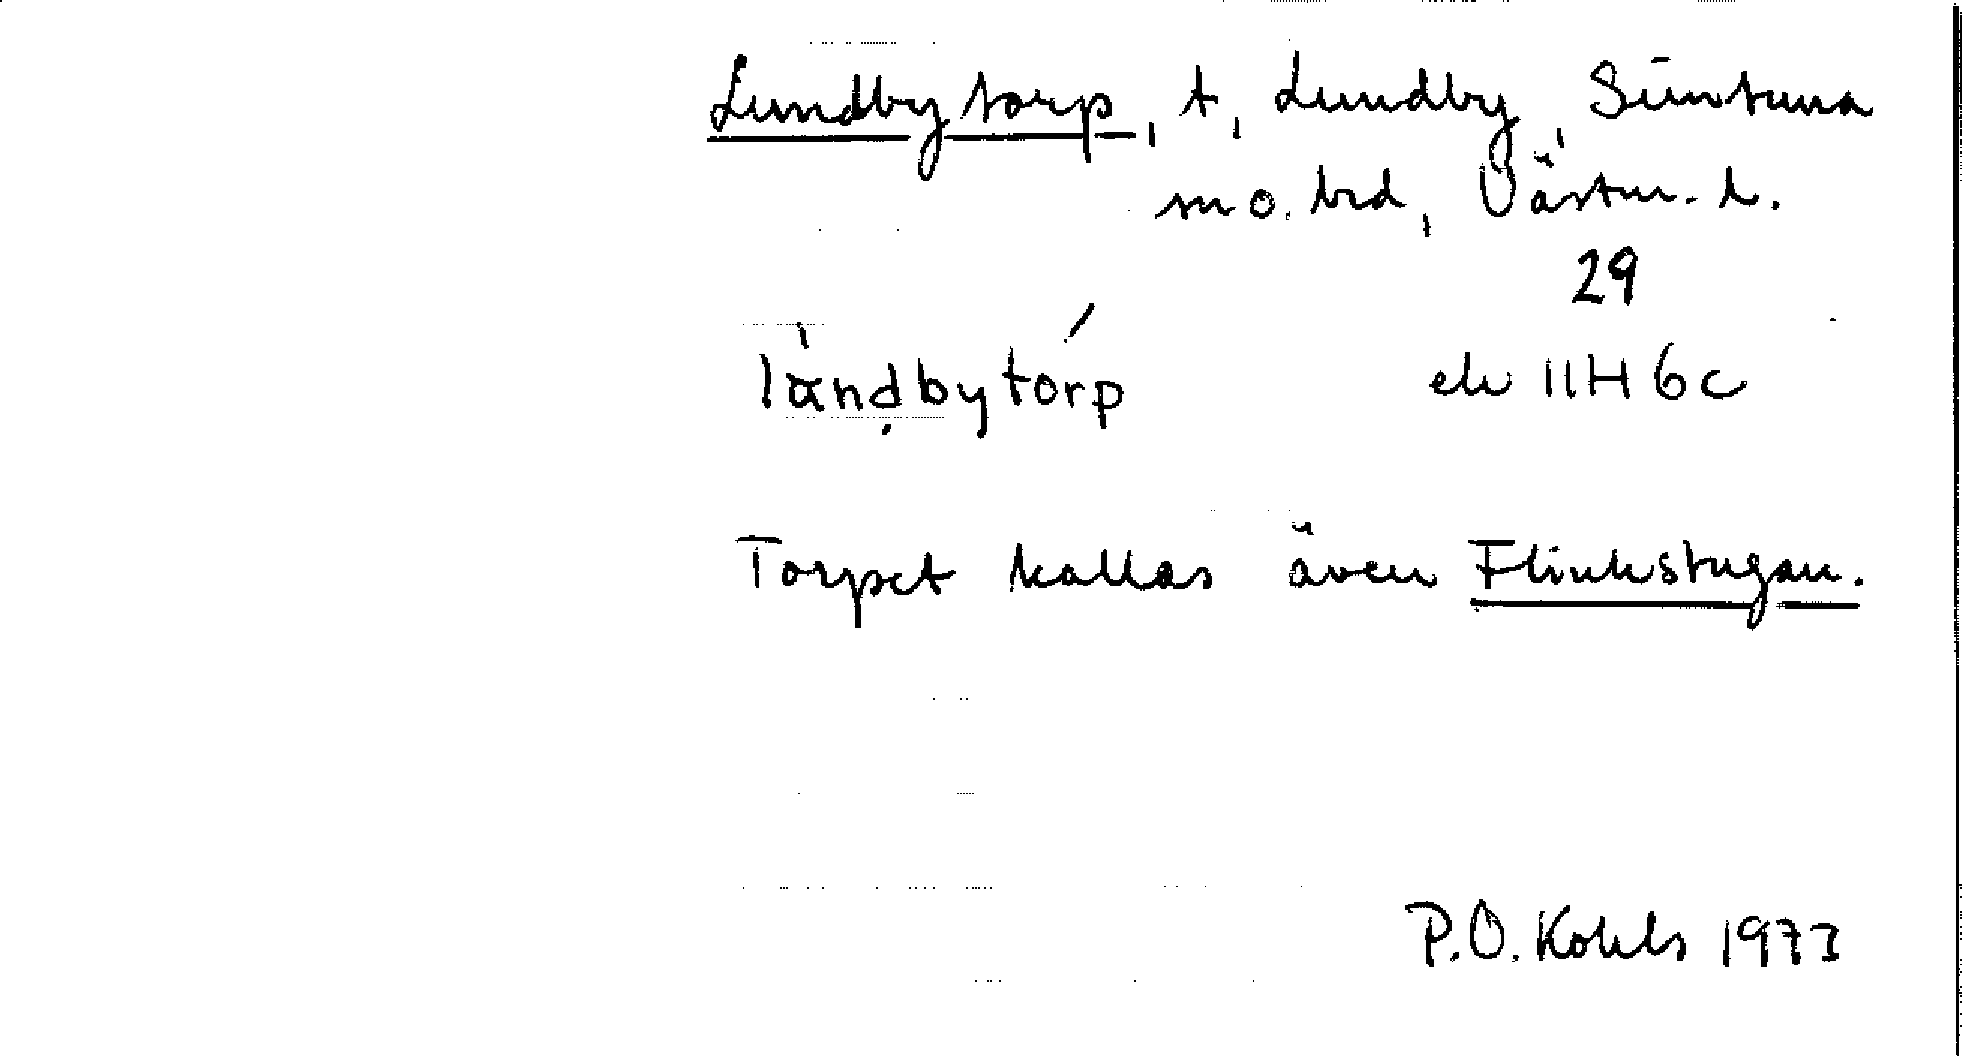 Lundbytorp, t, Lundby, Simtuna
sn o. hd, Västm. l.
29
làndbytórp ek 11H 6c
Torpet kallas även Flinkstugan.
P.O. Kohls 1973